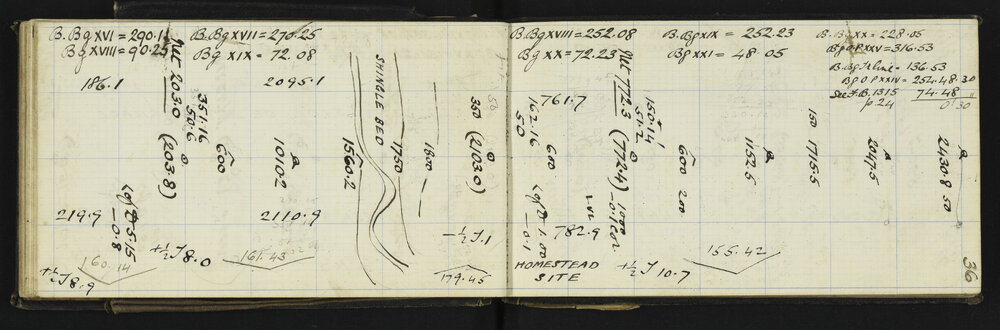 B. Bg XVI = 290.11
Bg XVIII = 90.25
B. Bg XVII = 270.25
Bg XIX = 72.08
186.1
2095.1
Net 2030 (2038)
351.16
50.6
600
1010.2
1560.2
SHINGLE BED
1750
1800
350 (2030)
219.9
Log D 5.15
-0.8
2110.9
160.14
+½T 8.0
161.43
+½T 8.9
-½T.1
179.45
B. Bg XVIII = 252.08
Bg XX = 72.23
B. Bg XIX = 252.23
Bg XXI = 48.05
B. Bg XX = 228.05
Bg O.P XXV = 316.53
B. Bg Te line = 136.53
Bg O.P XXIV = 254.48.30
See F.B. 1315
p. 24
74.48 "
0'30
761.7
162.16
50
600
Net 772.3 (772.4)
150.14
51.2
600 200
1152.5
150
1715.5
2047.5
2430.8 50
Log D 1.00
-0.1
782.9
1000
-0.1 cor
HOMESTEAD
SITE
+½T 10.7
155.42
36